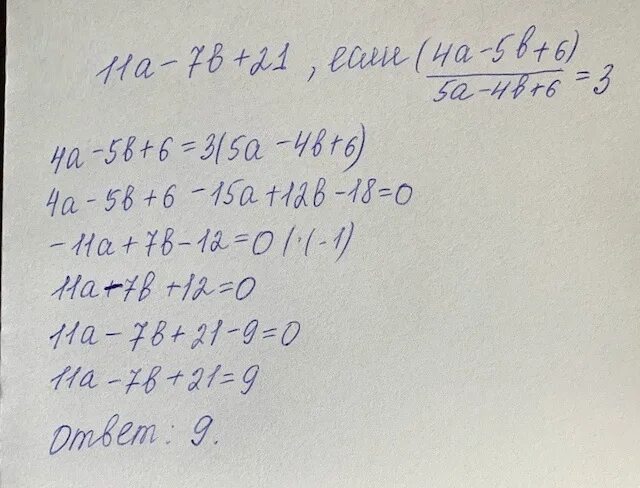 11а - 7в + 21 , если (4а - 5в + 6) / 5а - 4в + 6 = 3
4а - 5в + 6 = 3(5а - 4в + 6)
4а - 5в + 6 - 15а + 12в - 18 = 0
- 11а + 7в - 12 = 0 | · (-1)
11а - 7в + 12 = 0
11а - 7в + 21 - 9 = 0
11а - 7в + 21 = 9
Ответ: 9.